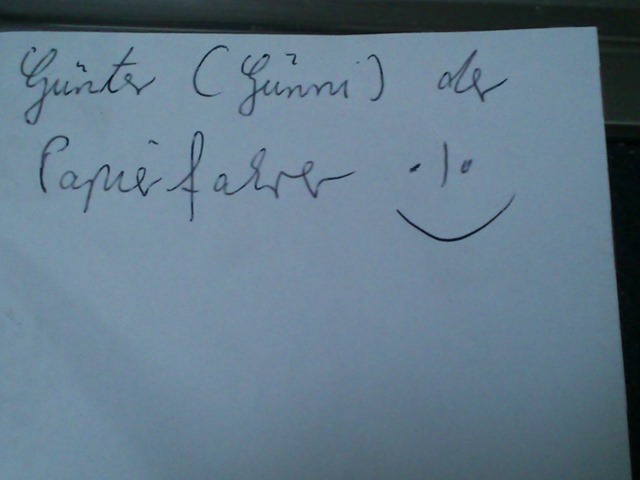 Günter (Günni) der
Papierfahrer